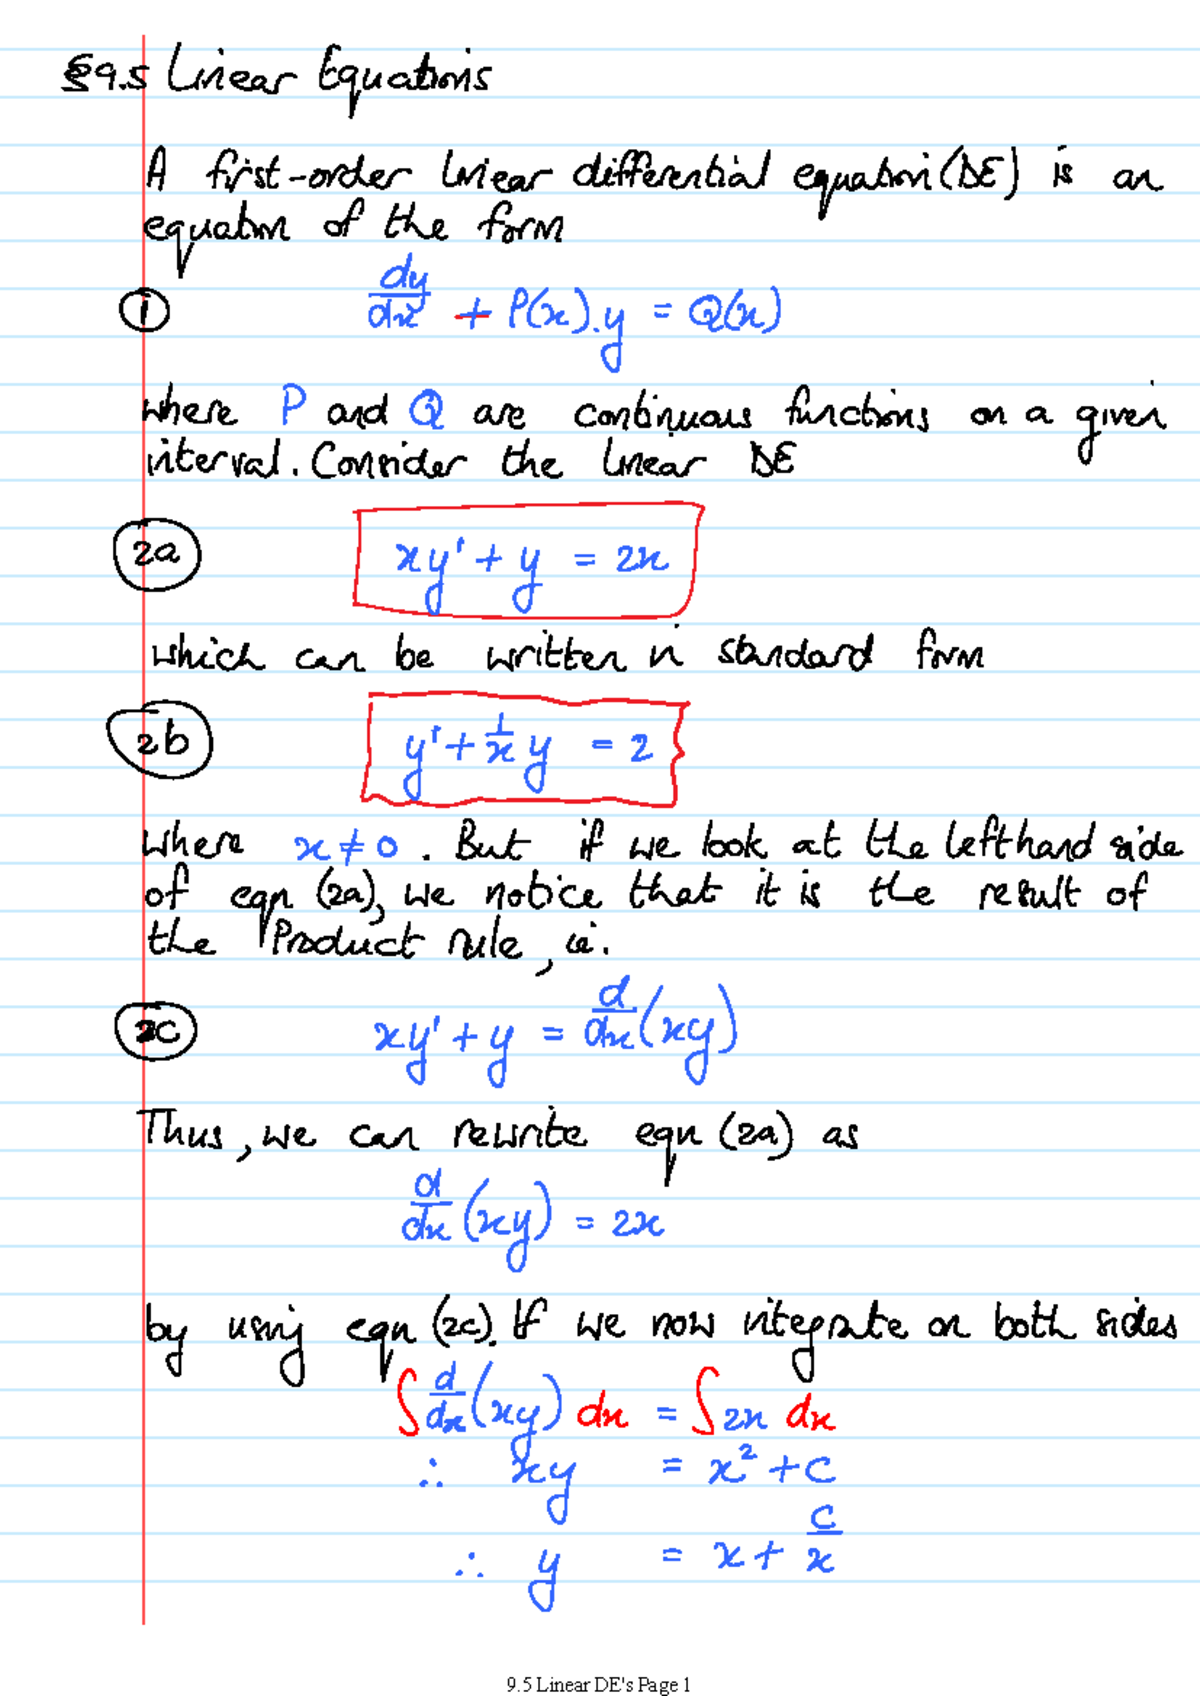 §9.5 Linear Equations
A first-order linear differential equation (DE) is an
equation of the form
① dy/dx + P(x).y = Q(x)
where P and Q are continuous functions on a given
interval. Consider the linear DE
2a xy' + y = 2x
which can be written in standard form
2b y' + 1/x y = 2
where x ≠ 0. But if we look at the lefthand side
of eqn (2a), we notice that it is the result of
the Product rule, ie.
2c xy' + y = d/dx (xy)
Thus, we can rewrite eqn (2a) as
d/dx (xy) = 2x
by using eqn (2c). If we now integrate on both sides
∫ d/dx (xy) dx = ∫ 2x dx
∴ xy = x² + C
∴ y = x + C/x
9.5 Linear DE's Page 1